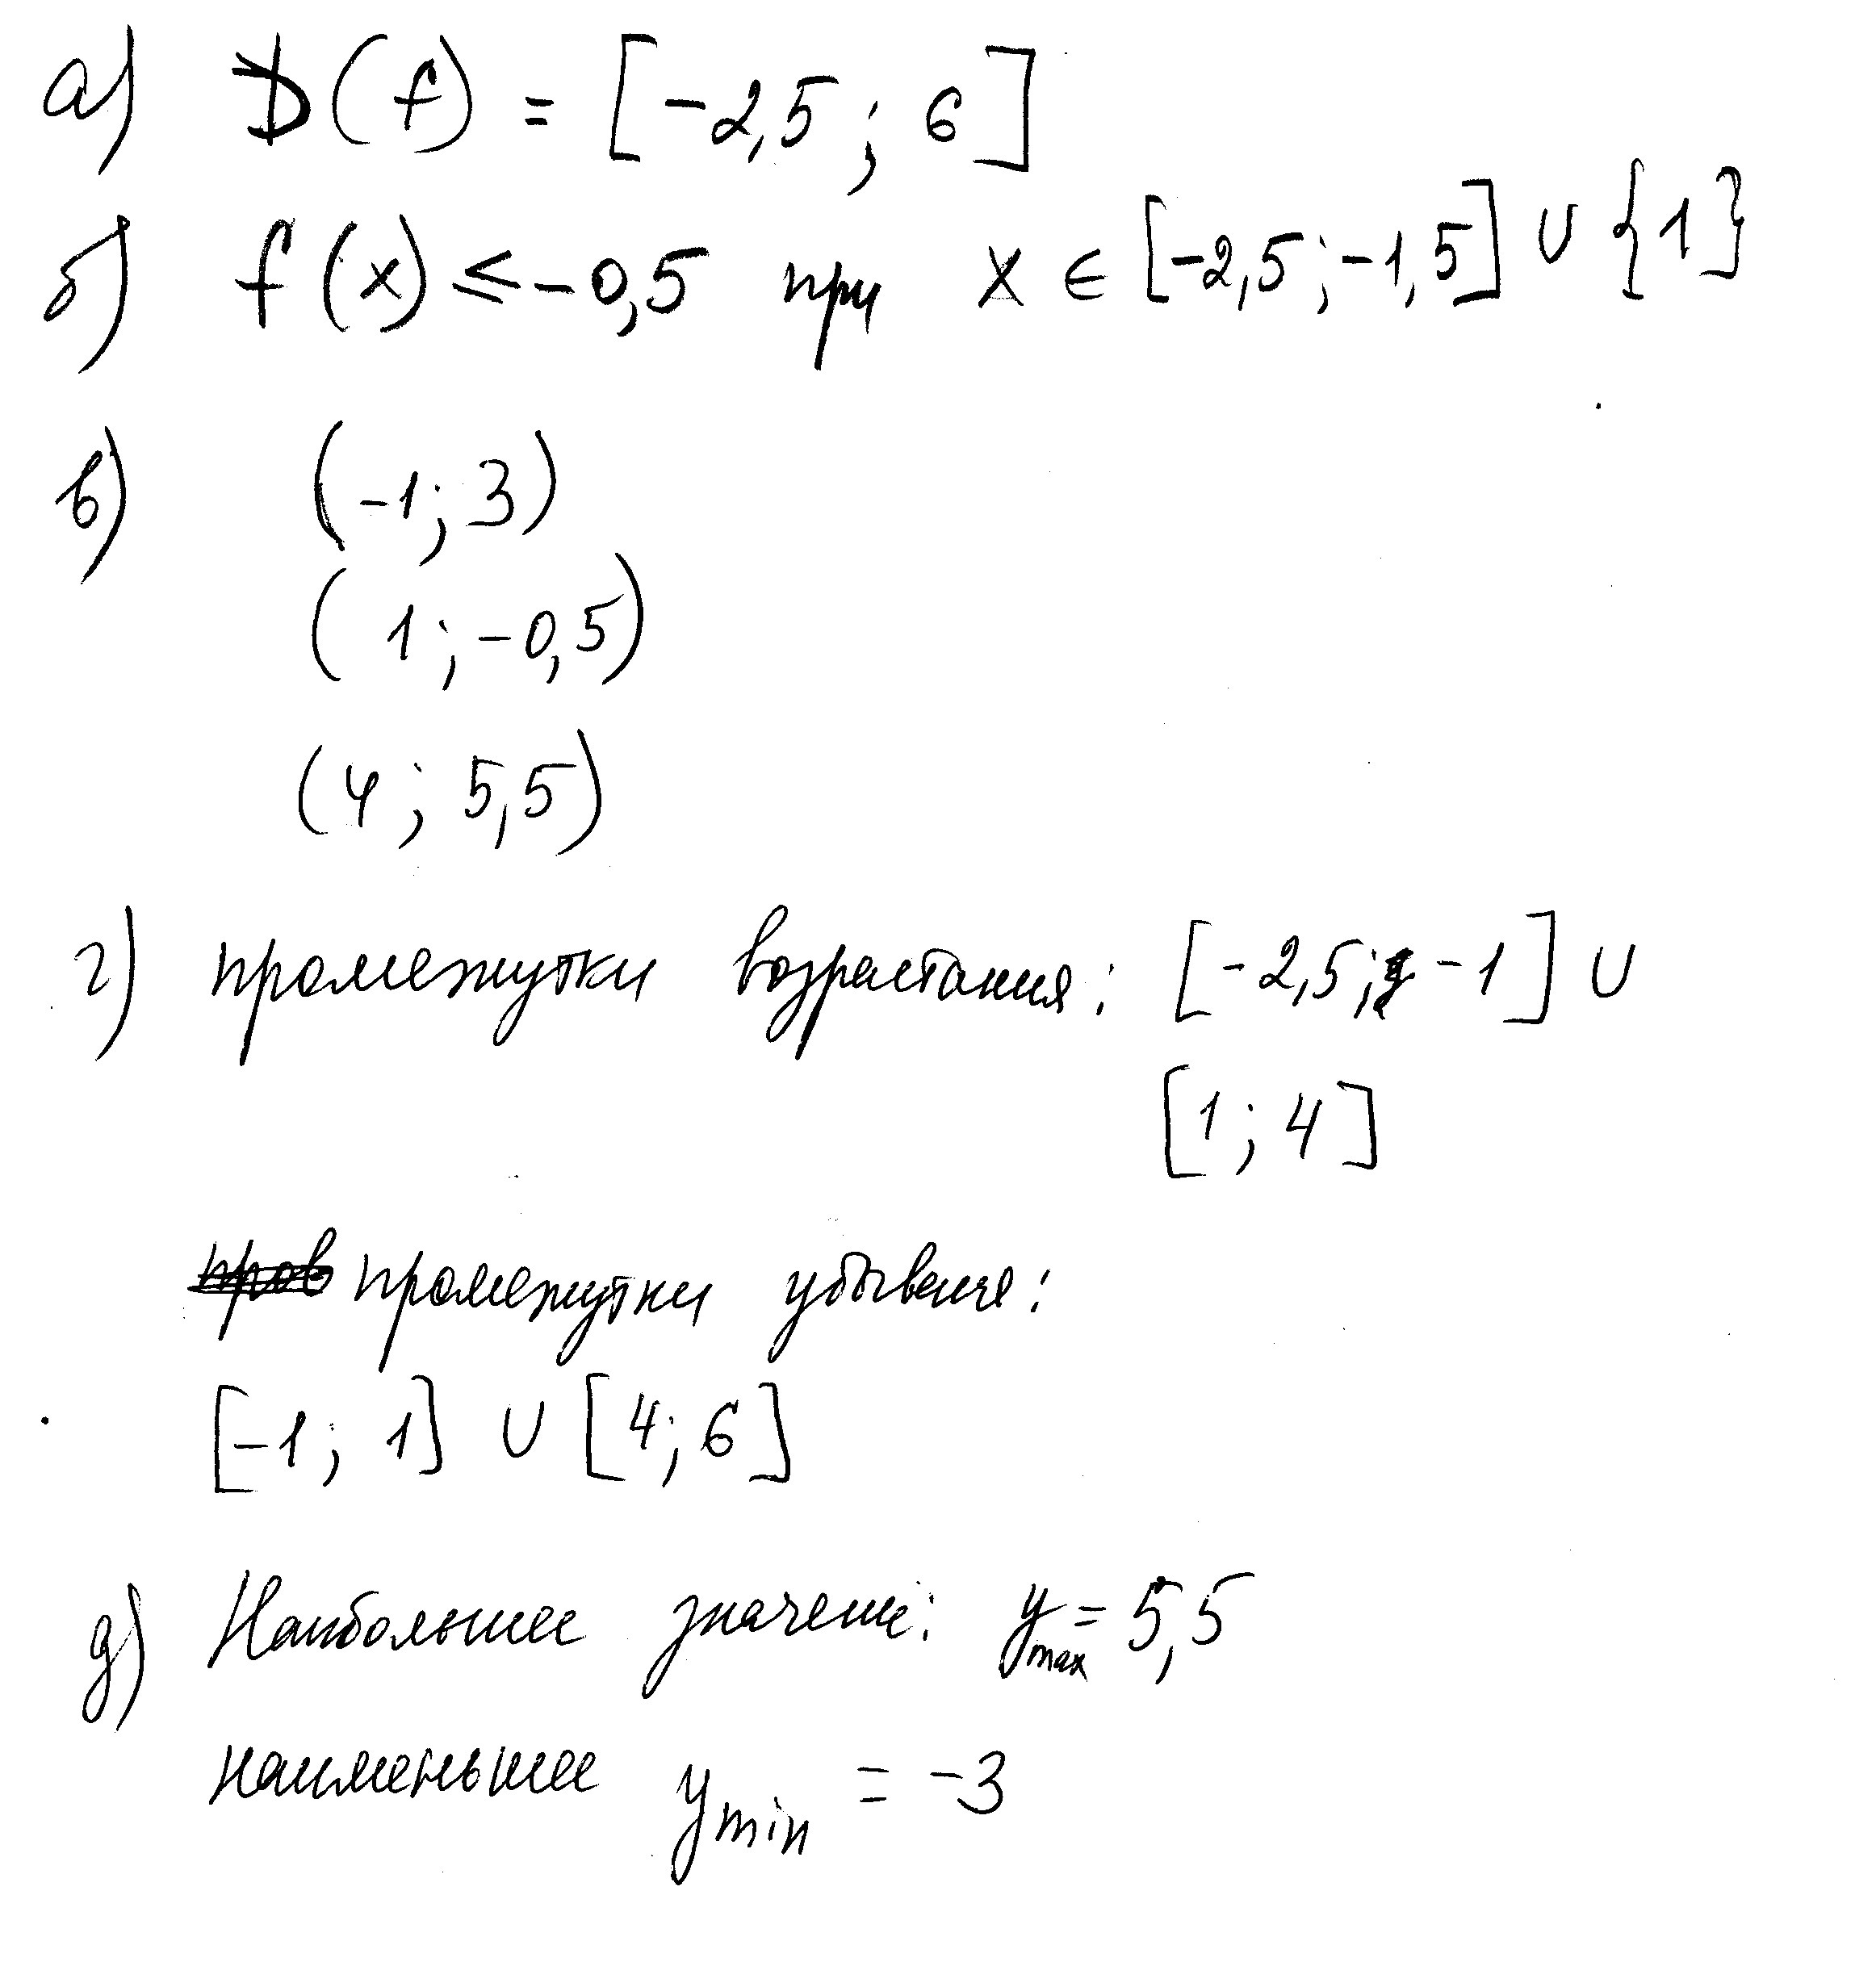 а) D(f) = [-2,5; 6]
б) f(x) ≤ -0,5 при x ∈ [-2,5; -1,5] ∪ {1}
в) (-1; 3)
(1; -0,5)
(4; 5,5)
г) промежутки возрастания: [-2,5; -1] ∪
[1; 4]
промежутки убывания:
[-1; 1] ∪ [4; 6]
д) Наибольшее значение: y max = 5,5
наименьшее y min = -3